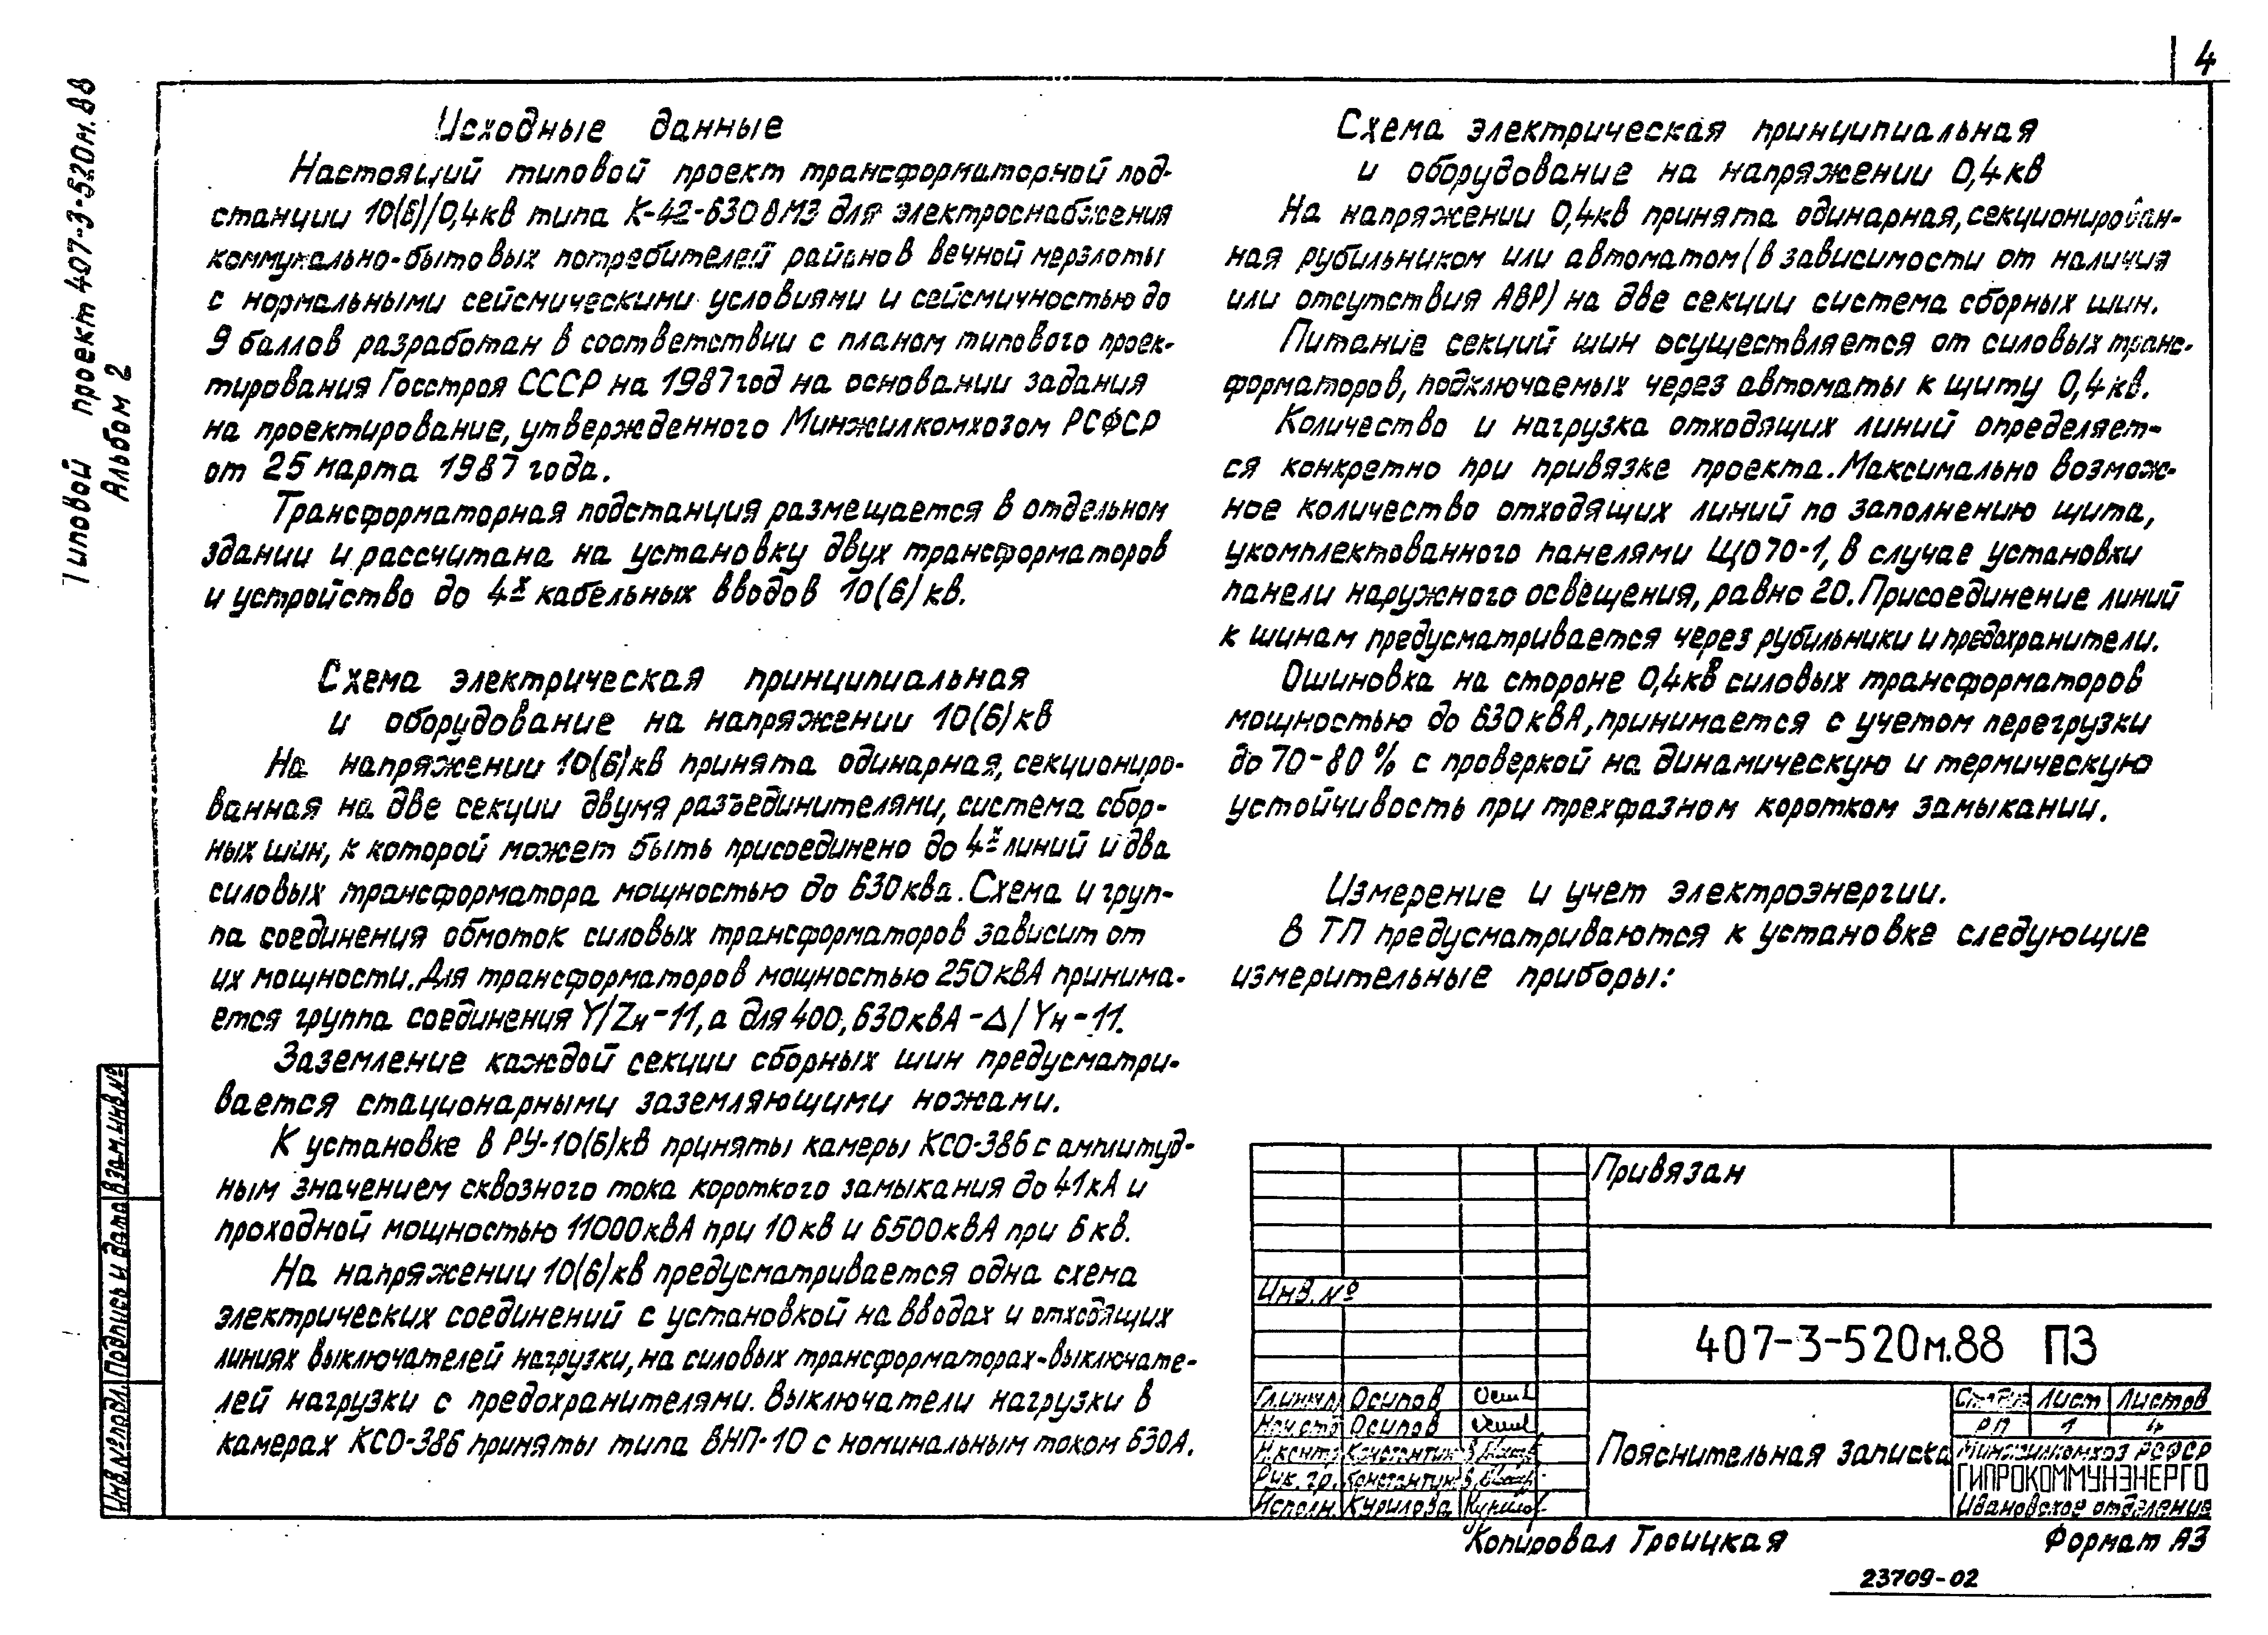 4
Типовой проект 407-3-520м.88
Альбом 2
Исходные данные
Настоящий типовой проект трансформаторной под-
станции 10(6)/0,4кв типа К-42-630ВМЗ для электроснабжения
коммунально-бытовых потребителей районов вечной мерзлоты
с нормальными сейсмическими условиями и сейсмичностью до
9 баллов разработан в соответствии с планом типового проек-
тирования Госстроя СССР на 1987год на основании задания
на проектирование, утвержденного Минжилкомхозом РСФСР
от 25 марта 1987 года.
Трансформаторная подстанция размещается в отдельном
здании и рассчитана на установку двух трансформаторов
и устройство до 4х кабельных вводов 10(6) кв.
Схема электрическая принципиальная
и оборудование на напряжении 10(6) кв
На напряжении 10(6)кв принята одинарная, секциониро-
ванная на две секции двумя разъединителями, система сбор-
ных шин, к которой может быть присоединено до 4х линий и два
силовых трансформатора мощностью до 630ква. Схема и груп-
па соединения обмоток силовых трансформаторов зависит от
их мощности. Для трансформаторов мощностью 250кВА принима-
ется группа соединения Y/Zн-11, а для 400, 630кВА -Δ/Yн-11.
Заземление каждой секции сборных шин предусматри-
вается стационарными заземляющими ножами.
К установке в РУ-10(6)кв приняты камеры КСО-386 с амплитуд-
ным значением сквозного тока короткого замыкания до 41кА и
проходной мощностью 11000кВА при 10кв и 6500кВА при 6кв.
На напряжении 10(6)кв предусматривается одна схема
электрических соединений с установкой на вводах и отходящих
линиях выключателей нагрузки, на силовых трансформаторах-выключате-
лей нагрузки с предохранителями. Выключатели нагрузки в
камерах КСО-386 приняты типа ВНП-10 с номинальным током 630А.
Схема электрическая принципиальная
и оборудование на напряжении 0,4кв
На напряжении 0,4кв принята одинарная, секционирован-
ная рубильником или автоматом (в зависимости от наличия
или отсутствия АВР) на две секции система сборных шин.
Питание секций шин осуществляется от силовых транс-
форматоров, подключаемых через автоматы к щиту 0,4кв.
Количество и нагрузка отходящих линий определяет-
ся конкретно при привязке проекта. Максимально возмож-
ное количество отходящих линий по заполнению щита,
укомплектованного панелями ЩО70-1, в случае установки
панели наружного освещения, равно 20. Присоединение линий
к шинам предусматривается через рубильники и предохранители.
Ошиновка на стороне 0,4кв силовых трансформаторов
мощностью до 630кВА, принимается с учетом перегрузки
до 70-80% с проверкой на динамическую и термическую
устойчивость при трехфазном коротком замыкании.
Измерение и учет электроэнергии.
В ТП предусматриваются к установке следующие
измерительные приборы:
Взам.инв.№
Подпись и дата
Инв.№подл.
Привязан
Инв.№
407-3-520м.88 ПЗ
Осипов
Осипов
Константинов
Рук. гр. Константинов
Исполн. Курилова
Пояснительная записка
Стадия Лист Листов
РП 1 4
Минжилкомхоз РСФСР
ГИПРОКОММУНЭНЕРГО
Ивановское отделение
Копировал Троицкая
Формат А3
23709-02